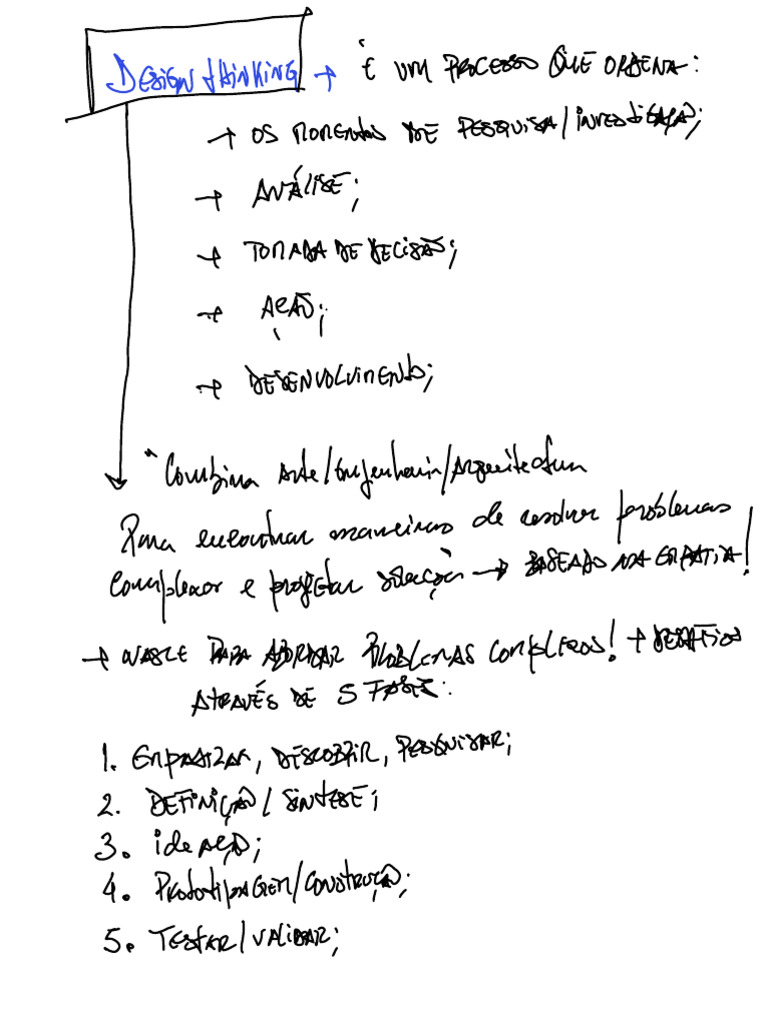 DESIGN thINKING → É UM PROCESSO QUE ORDENA:
→ OS MOMENtos DE PESQUISA/INVEStIGAÇÃO;
→ ANÁLISE;
→ TOMADA DE DECISÃO;
→ AÇÃO;
→ DESENVOLVIMENtO;
"Combina Arte/Engenharia/Arquitetura
Para encontrar maneiras de resolver problemas
complexos e projetar soluções → BASEADO NA EMPATIA!
→ NASCE PARA ABORDAR PROBLEMAS COMPLEXOS! + DESAFIOS
ATRAVÉS DE 5 FASES:
1. EMPATIZAR, DESCOBRIR, PESQUISAR;
2. DEFINIÇÃO/SÍNTESE;
3. ideAÇÃO;
4. PROtOtIPAGEM/CONSTRUÇÃO;
5. TEStAR/VALIDAR;